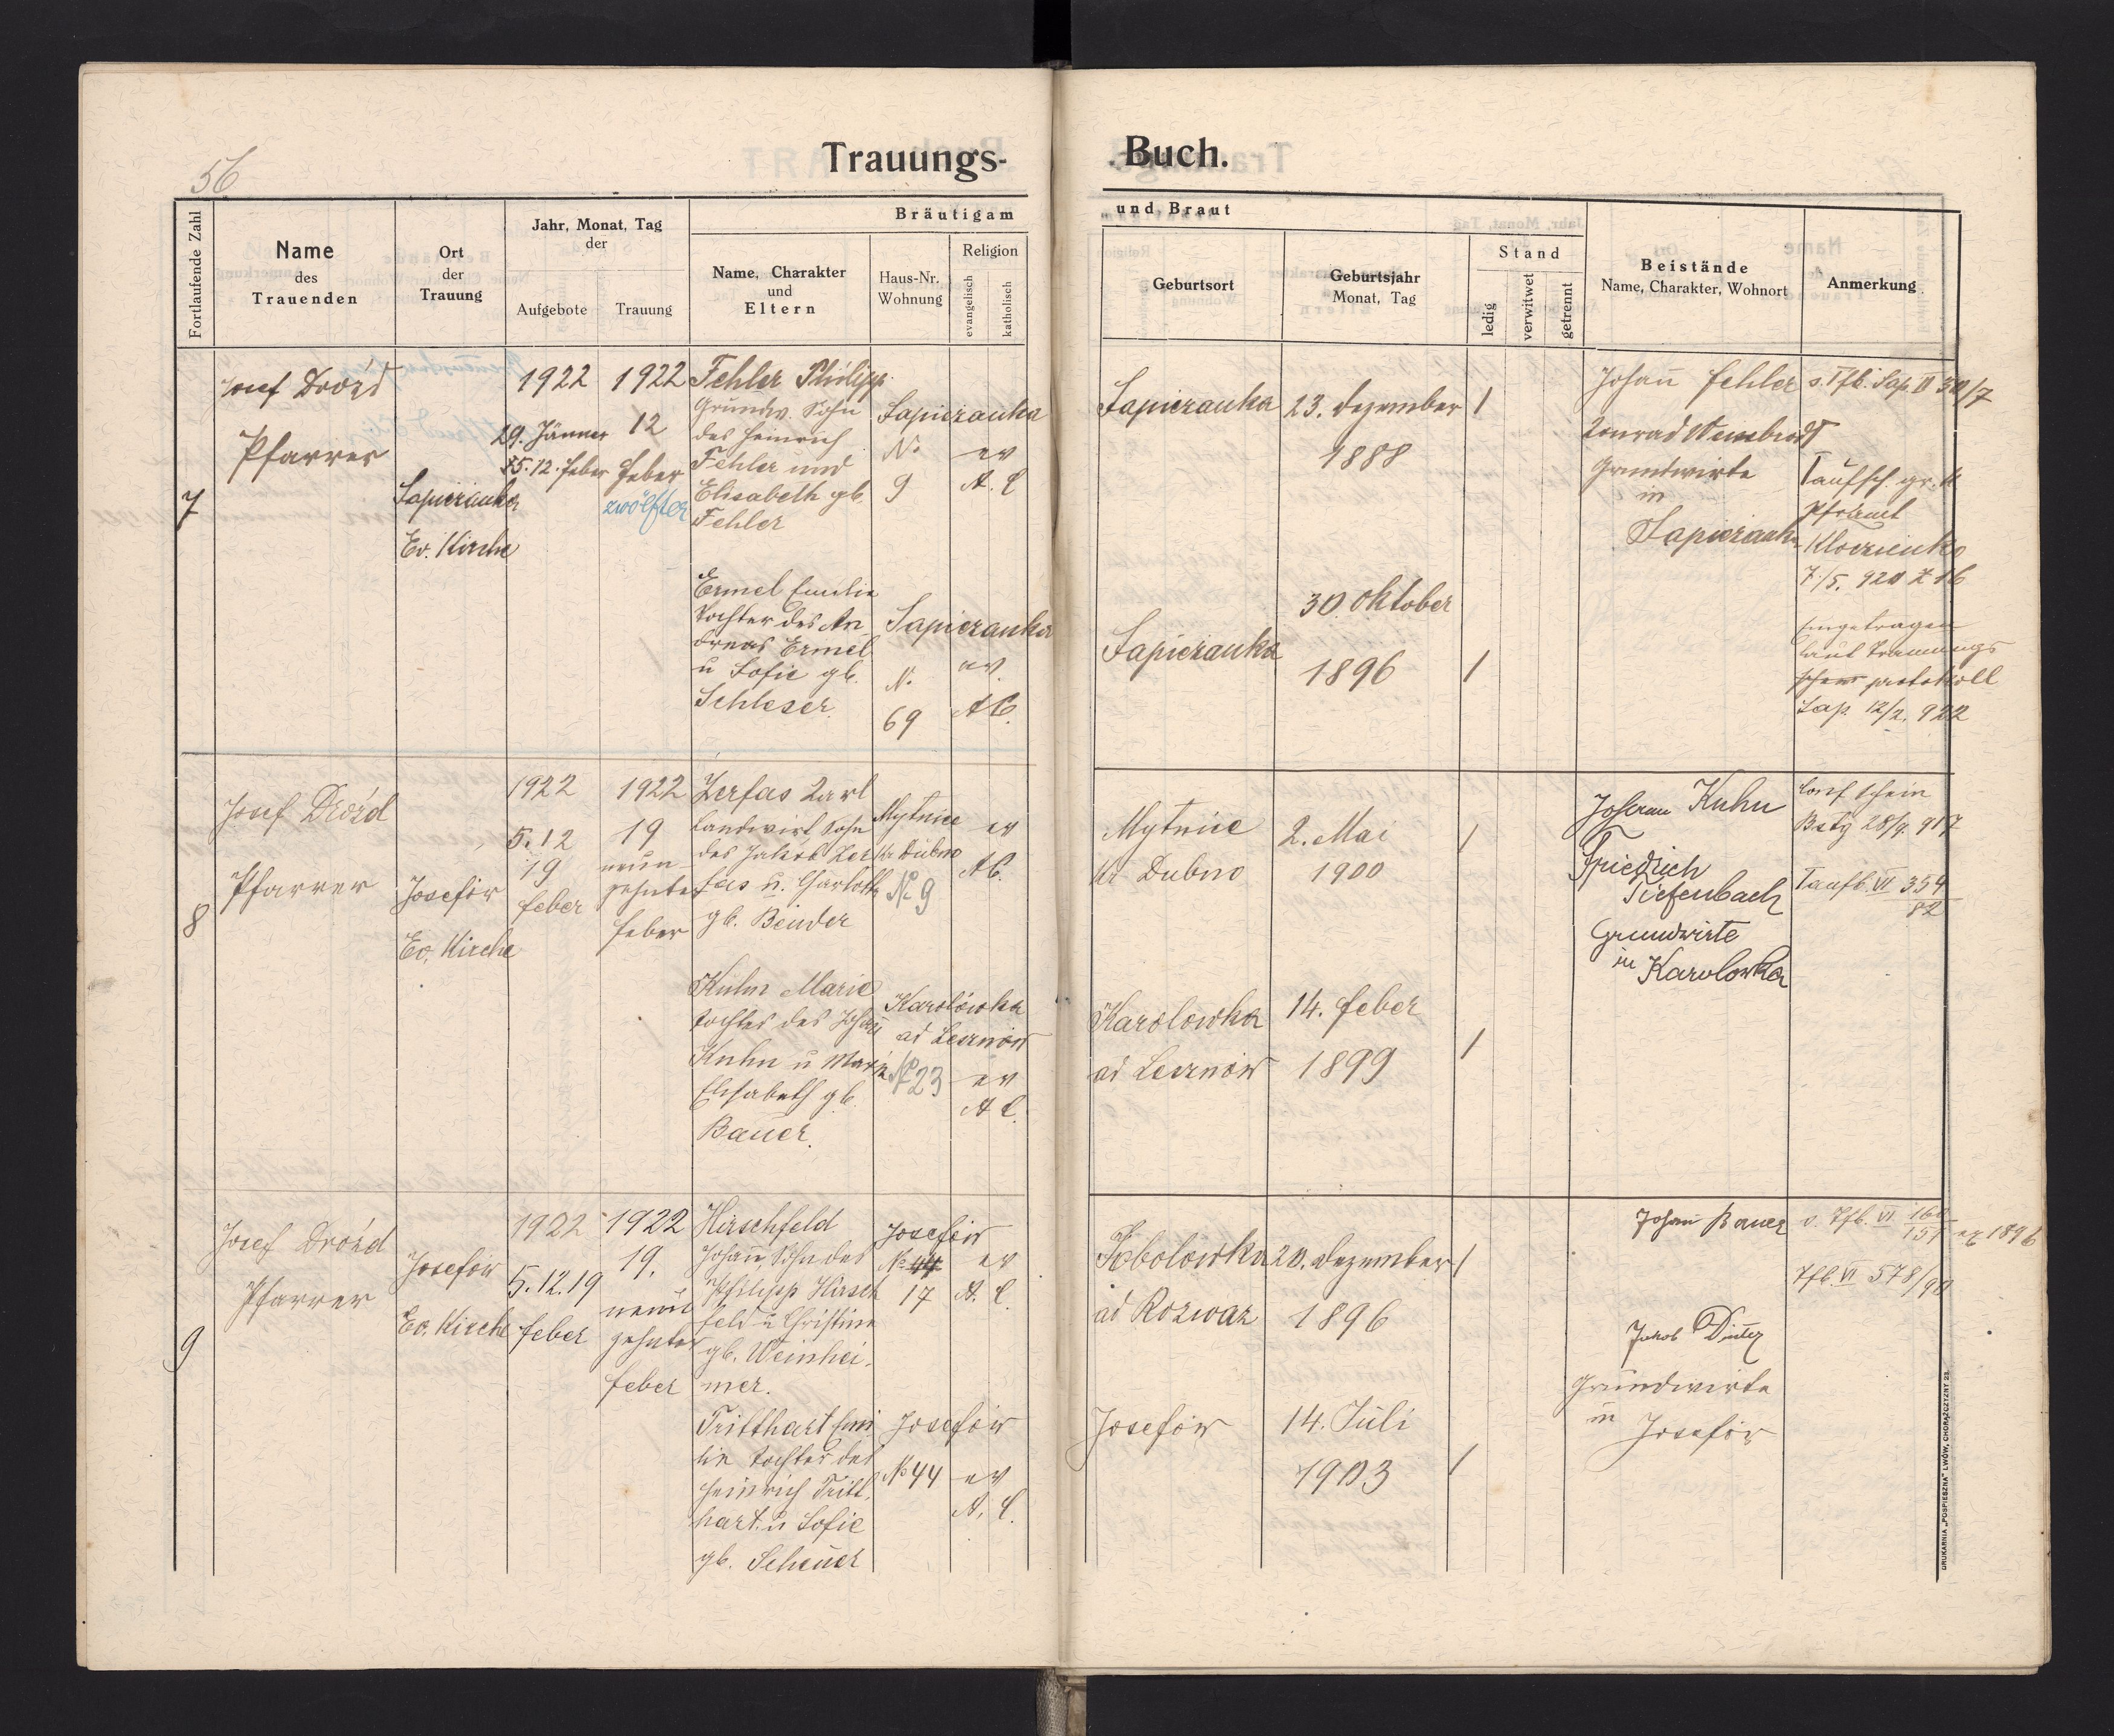 56
Trauungs-
Buch.
Fortlaufende Zahl
Name
des
Trauenden
Ort
der
Trauung
Jahr, Monat, Tag
der
Aufgebote
Trauung
Bräutigam
Name, Charakter
und
Eltern
Haus-Nr.
Wohnung
Religion
evangelisch
katholisch
und Braut
Geburtsort
Geburtsjahr
Monat, Tag
Stand
ledig
verwitwet
getrennt
Beistände
Name, Charakter, Wohnort
Anmerkung
7
Josef Drożd
Pfarrer
Sapieżanka
Ev. Kirche
1922
29. Jänner
5. 12. feber
1922
12
feber
zwölfter
Fehler Philipp
Grundw. Sohn
des Heinrich
Fehler und
Elisabeth gb.
Fehler
Sapieżanka
N.
9
ev
A. C
Sapieżanka
23. Dezember
1888
/
Johann Fehler
Konrad
Grundwirte
in
Sapieżanka
s. Tfb. Sap. II 30/7
Taufsch. gr. k
Pframt
7./5. 920 Z 16
Eingetragen
laut Trauungs
protokoll
Sap. 12/2. 922
Ermel Emilie
Tochter des An
dreas Ermel
u Sofie gb.
Schleser
Sapieżanka
N.
69
ev
A C.
Sapieżanka
30. Oktober
1896
/
8
Josef Drożd
Pfarrer
Josefów
Ev. Kirche
1922
5. 12
19
feber
1922
19
neun
zehnter
feber
Zerfas Karl
Landwirt Sohn
des Jakob Zer
fas u. Charlotte
gb. Bender
Mytnice
Kr Dubno
N. 9
ev
A C.
Mytnice
Kr Dubno
2. Mai
1900
/
Johann Kuhn
Friedrich
Tiefenbach
Grundwirte
in Karolowka
Conf schein
28/9. 917
Taufb. VI 354
82
Kuhn Marie
Tochter des Johann
Kuhn u Marie
Elisabeth gb.
Bauer.
Karolówka
ad Lesznów
N. 23
ev
A C.
Karolówka
ad Lesznów
14. feber
1899
/
9
Josef Drożd
Pfarrer
Josefów
Ev. Kirche
1922
5. 12. 19
feber
1922
19.
neun
zehnter
feber
Hirschfeld
Johann, Sohn des
Philipp Hirsch
feld u Christine
gb. Weinhei-
mer.
Josefów
No 44
17
ev
A. C.
ad Rozważ
20. Dezember
1896
/
Johann Bauer
Jakob
Grundwirte
in
Josefów
s. Tfb. VI 160
151 ex 1896
Tfb. VI 578/90
Tritthart Emi
lie Tochter des
Heinrich Tritt
hart u Sofie
gb. Scheuer
Josefów
No 44
ev
A. C.
Josefów
14. Juli
1903
/
DRUKARNIA „POSPIESZNA" LWÓW, CHORĄŻCZYZNY 23.